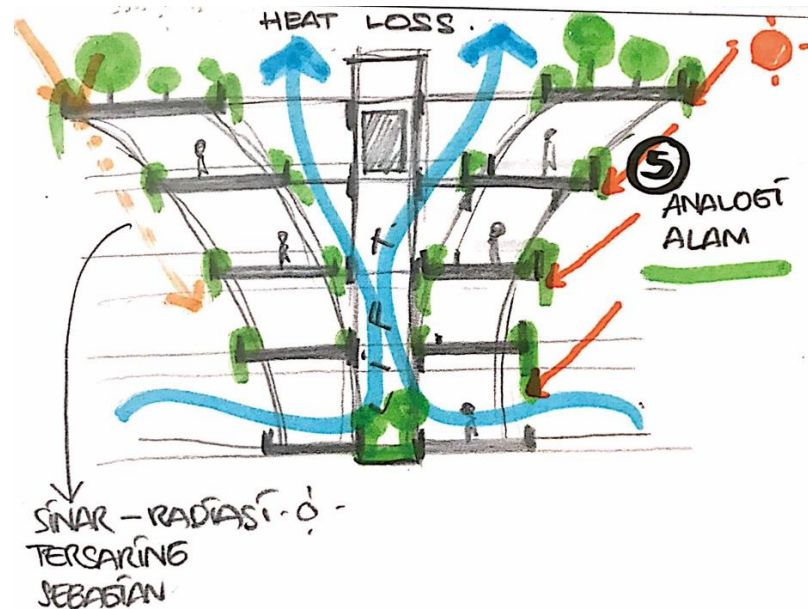 HEAT LOSS.
5
ANALOGI
ALAM
SINAR - RADIASI
TERSARING
SEBAGIAN